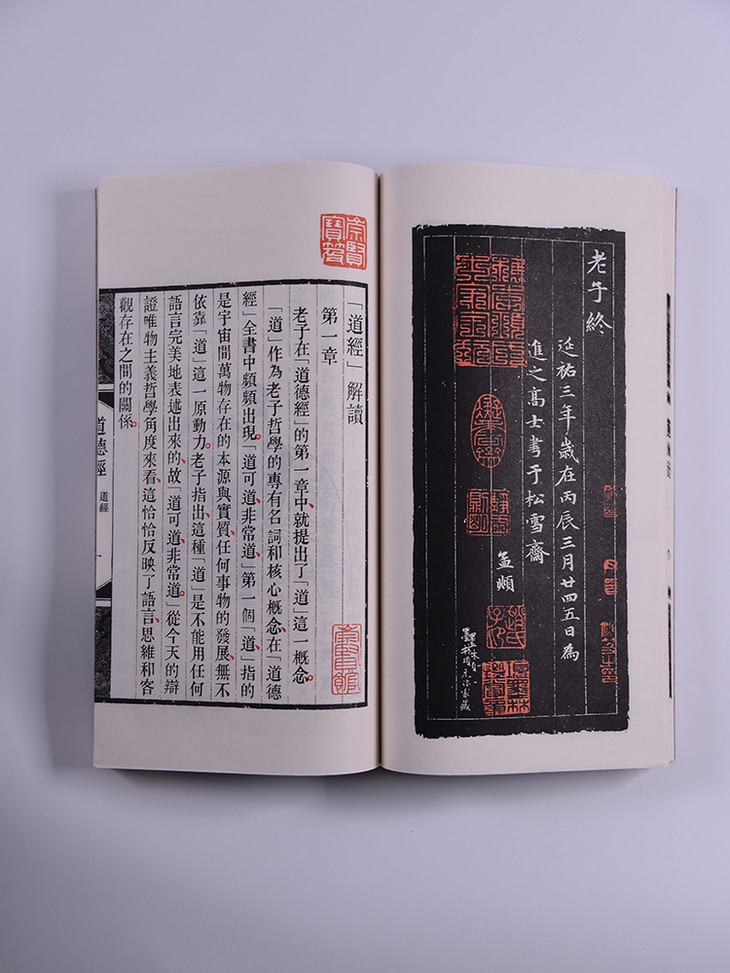 老子終
延祐三年歲在丙辰三月廿四五日為
進之高士書于松雪齋
孟頫
「道經」解讀
第一章
老子在「道德經」的第一章中、就提出了「道」這一概念。
「道」作為老子哲學的專有名詞和核心概念、在「道德
經」全書中頻頻出現。「道可道、非常道」第一個「道」、指的
是宇宙間萬物存在的本源與實質、任何事物的發展、無不
依靠「道」這一原動力。老子指出、這種「道」是不能用任何
語言完美地表述出來的、故「道可道、非常道。」從今天的辯
證唯物主義哲學角度來看、這恰恰反映了語言、思維和客
觀存在之間的關係。
道德經
道經
一
崇賢
寶笈
崇賢館